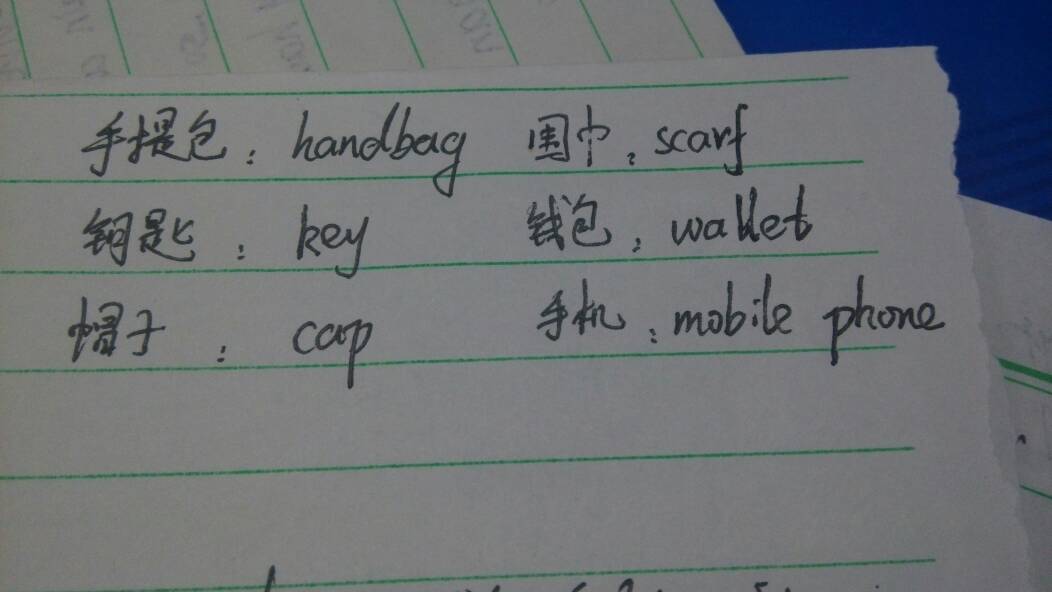 手提包：handbag 围巾：scarf
钥匙：key 钱包：wallet
帽子：cap 手机：mobile phone